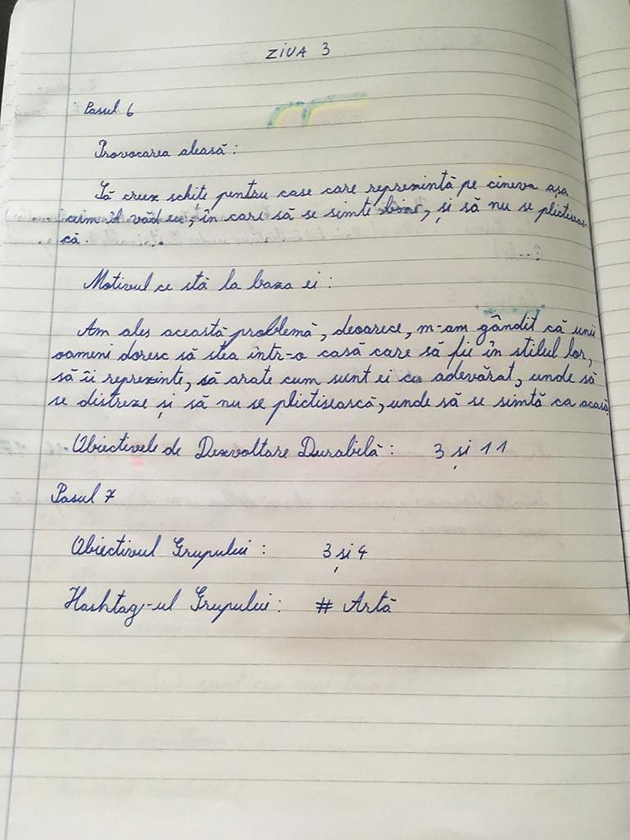 ZIUA 3
Pasul 6
Provocarea aleasă:
Să creez schite pentru case care reprezintă pe cineva așa
cum îl văd eu, în cari să se simtă bine, și să nu se plictiseas-
că.
Motivul ce stă la baza ei:
Am ales această problemă, deoarece, m-am gândit că unii
oameni doresc să stea într-o casă care să fie în stilul lor,
să îi reprezinte, să arate cum sunt ei cu adevărat, unde să
se distreze și să nu se plictisească, unde să se simtă ca acasă.
Obiectivele de Dezvoltare Durabilă: 3 și 11
Pasul 7
Obiectivul Grupului: 3 și 4
Hashtag-ul Grupului: # Artă